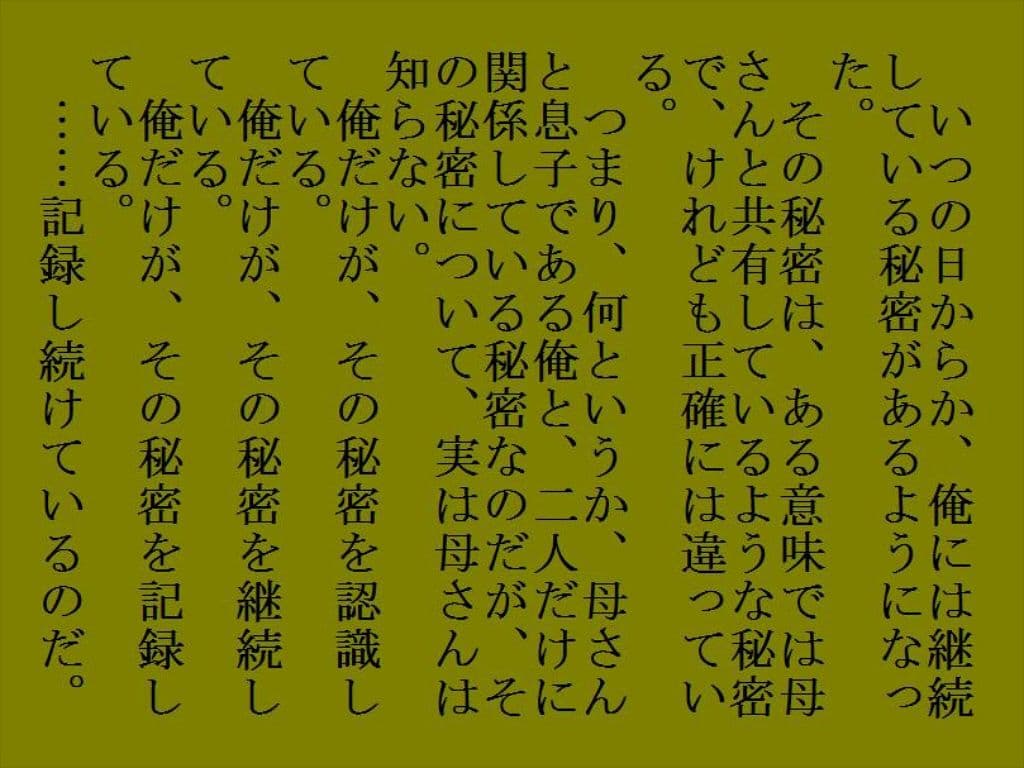 いつの日からか、俺には継続
している秘密があるようになっ
た。
その秘密は、ある意味では母
さんと共有しているような秘密
で、けれども正確には違ってい
る。
つまり、何というか、母さん
と息子である俺と、二人だけに
関係している秘密なのだが、そ
の秘密について、実は母さんは
知らない。
俺だけが、その秘密を認識し
ている。
俺だけが、その秘密を継続し
ている。
俺だけが、その秘密を記録し
ている。
……記録し続けているのだ。